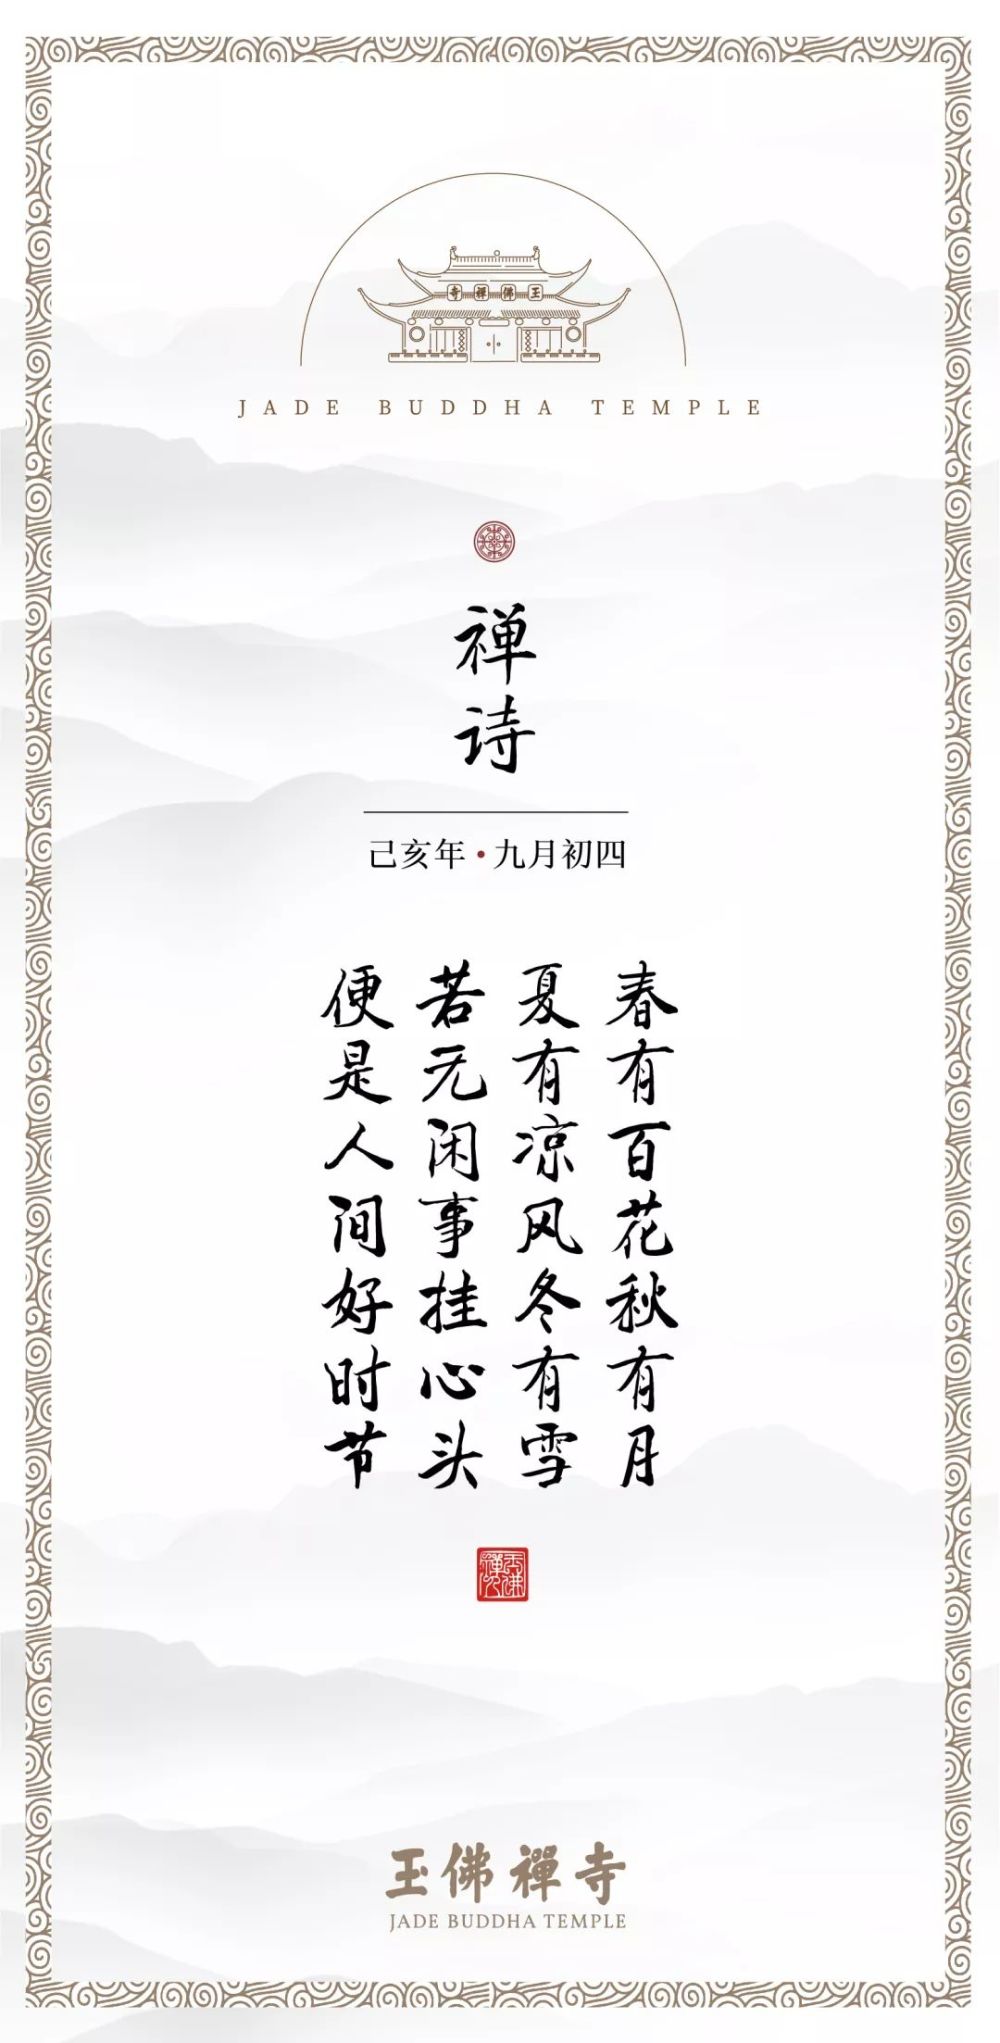 寺禅佛玉
JADE BUDDHA TEMPLE
禅诗
己亥年·九月初四
春有百花秋有月
夏有凉风冬有雪
若无闲事挂心头
便是人间好时节
玉佛禪寺
JADE BUDDHA TEMPLE